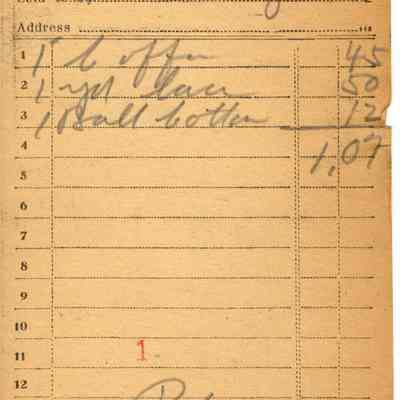 Address
1 1 lb coffee 45
2 1 yd lace 50
3 1 Ball cotton 12
4 1,07
5
6
7
8
9
10
11 1
12